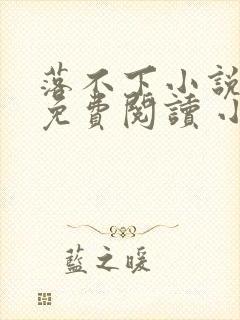 落不下小說
免費閱讀 小
藍之暖